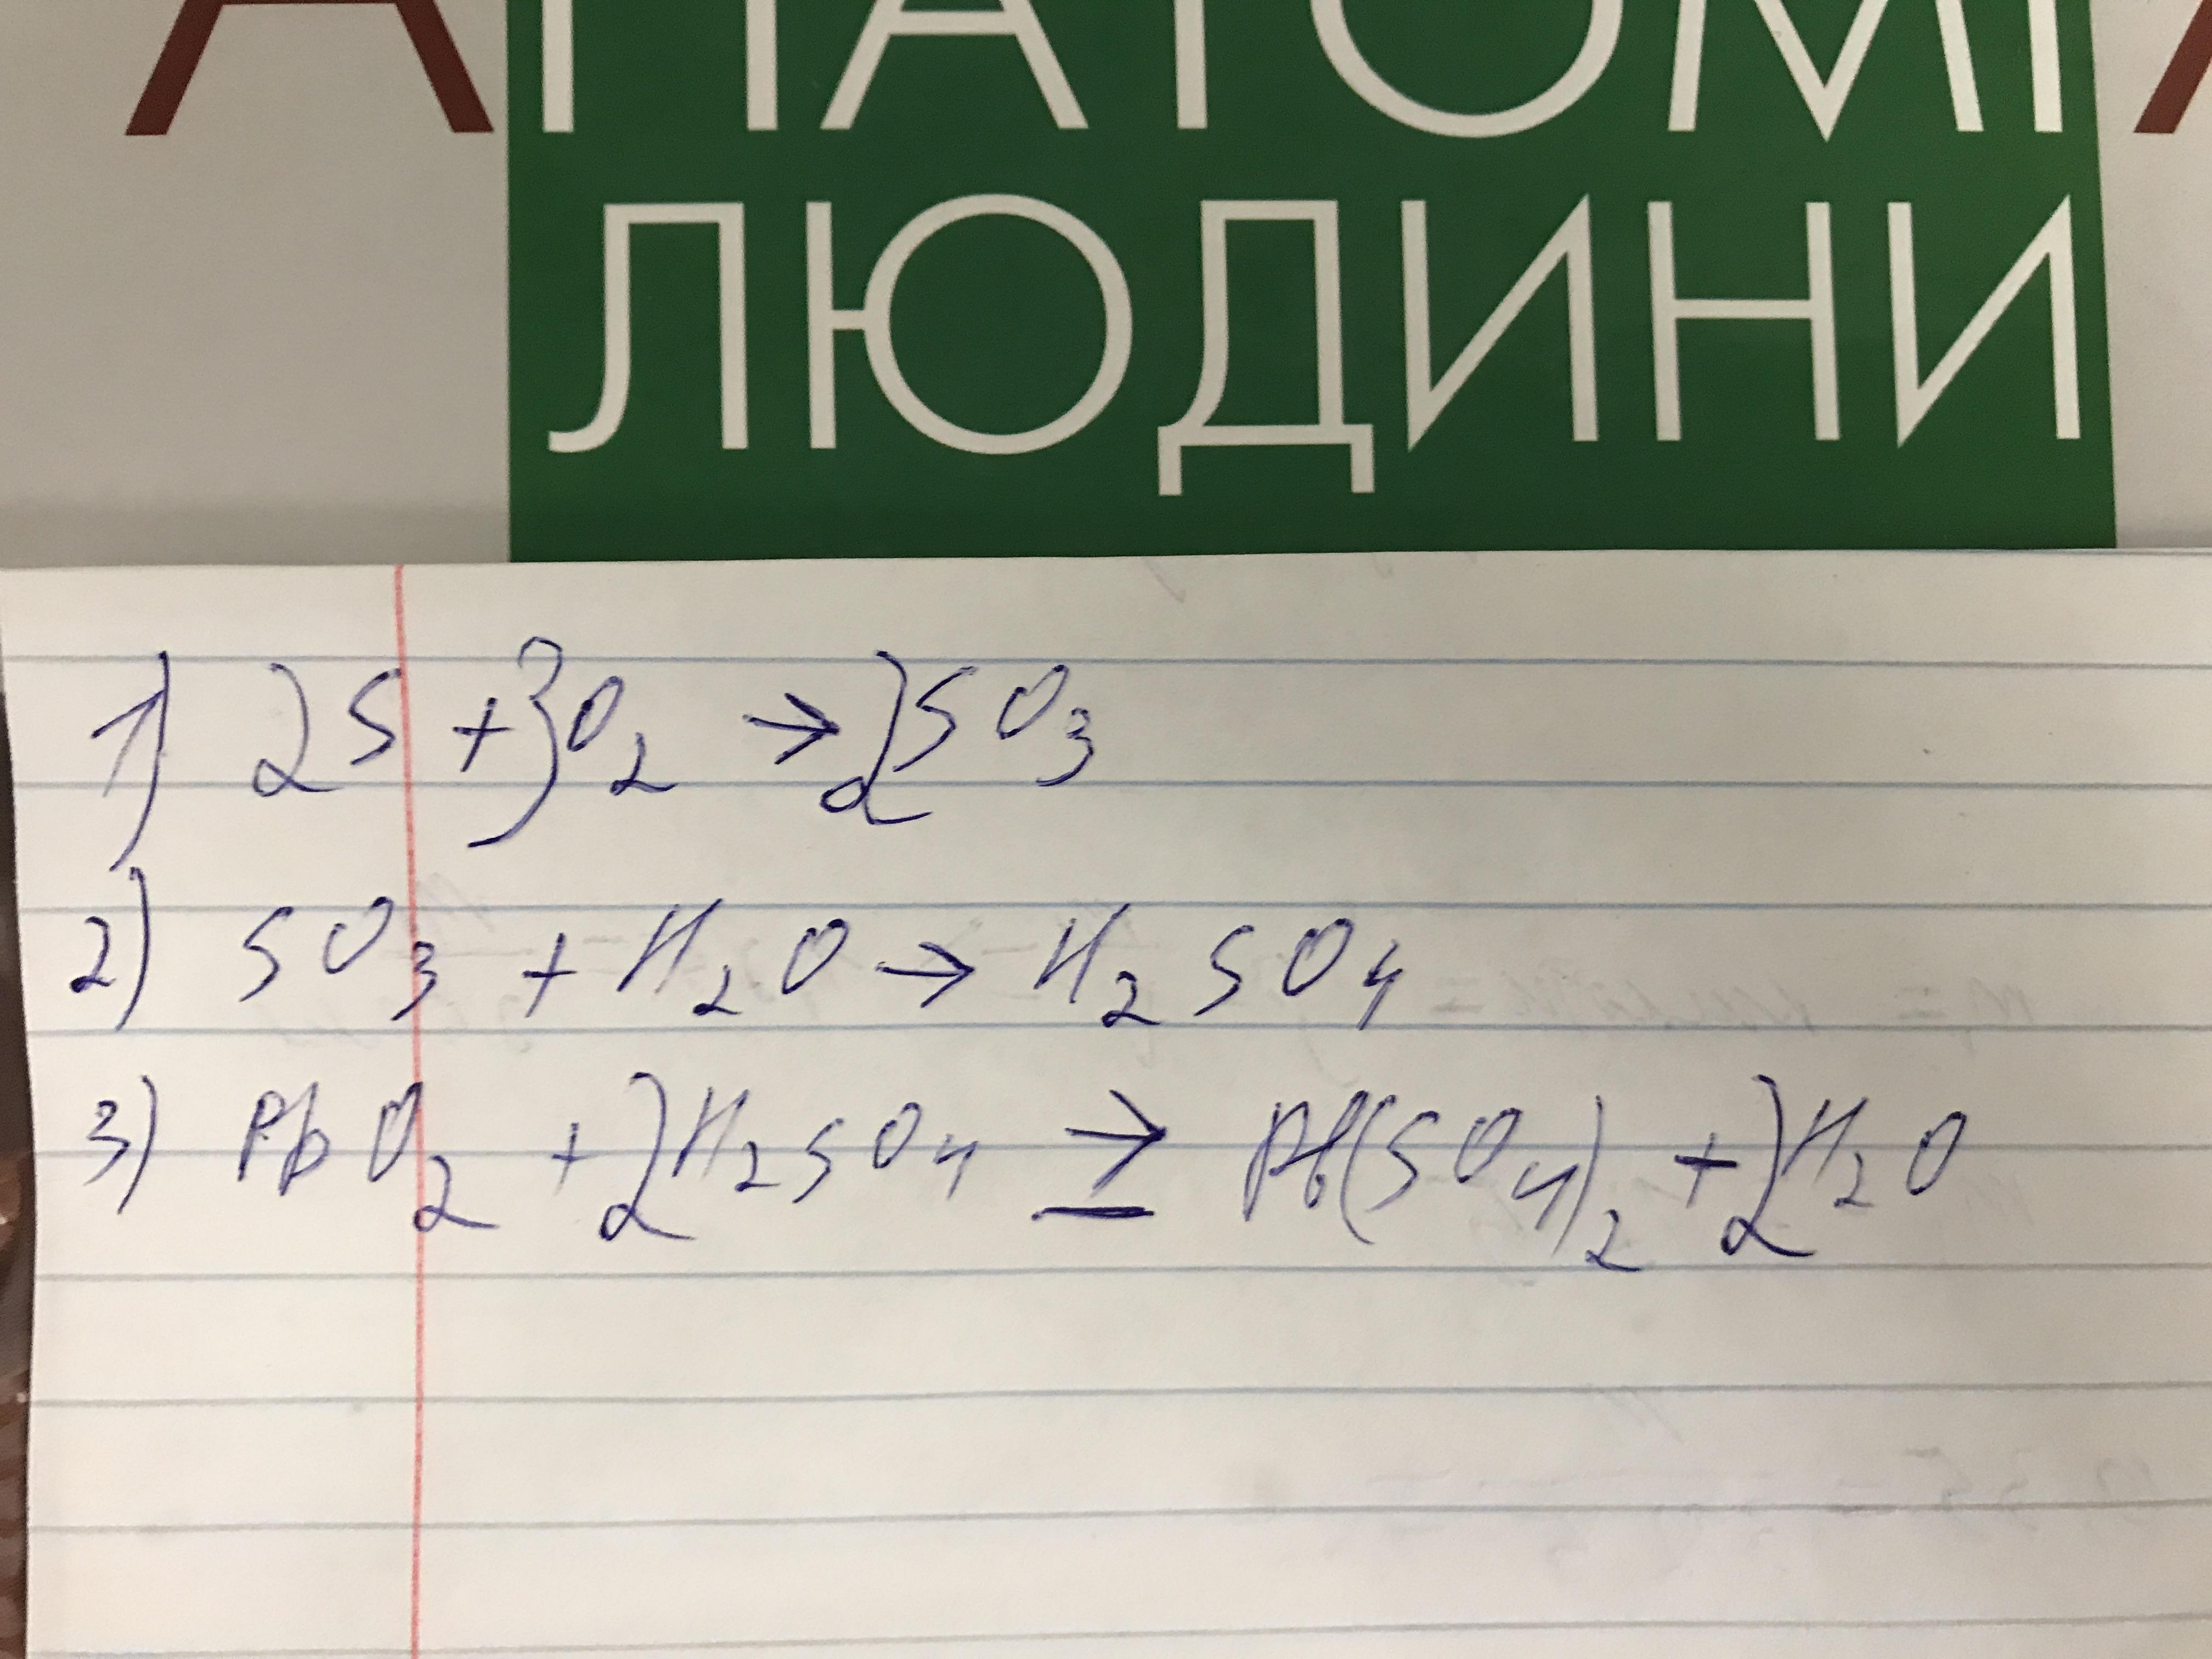 АНАТОМІЯ
ЛЮДИНИ
1) 2S + 3O₂ → 2SO₃
2) SO₃ + H₂O → H₂SO₄
3) PbO₂ + 2H₂SO₄ → Pb(SO₄)₂ + 2H₂O